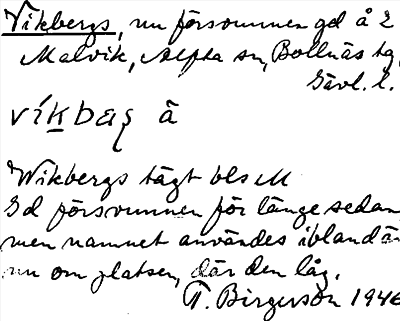 Vikbergs, nu försvunnen gd å 2
Malvik, Alfta sn, Bollnäs tg,
Gävl. l.
víkbaʂ å
Wikbergs tägt bls M
Gd försvunnen för länge sedan,
men namnet användes ibland än
nu om platsen, där den låg.
T. Birgerson 1946